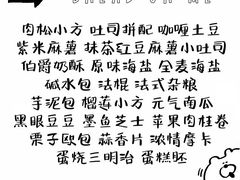 BREAD ON ME
肉松小方 吐司拼配 咖喱土豆
紫米麻薯 抹茶红豆麻薯小吐司
伯爵奶酥 原味海盐 全麦海盐
碱水包 法棍 法式杂粮
芋泥包 榴莲小方 元气南瓜
黑眼豆豆 墨鱼芝士 苹果肉桂卷
栗子欧包 蒜香片 浓情摩卡
蛋烧三明治 蛋糕胚